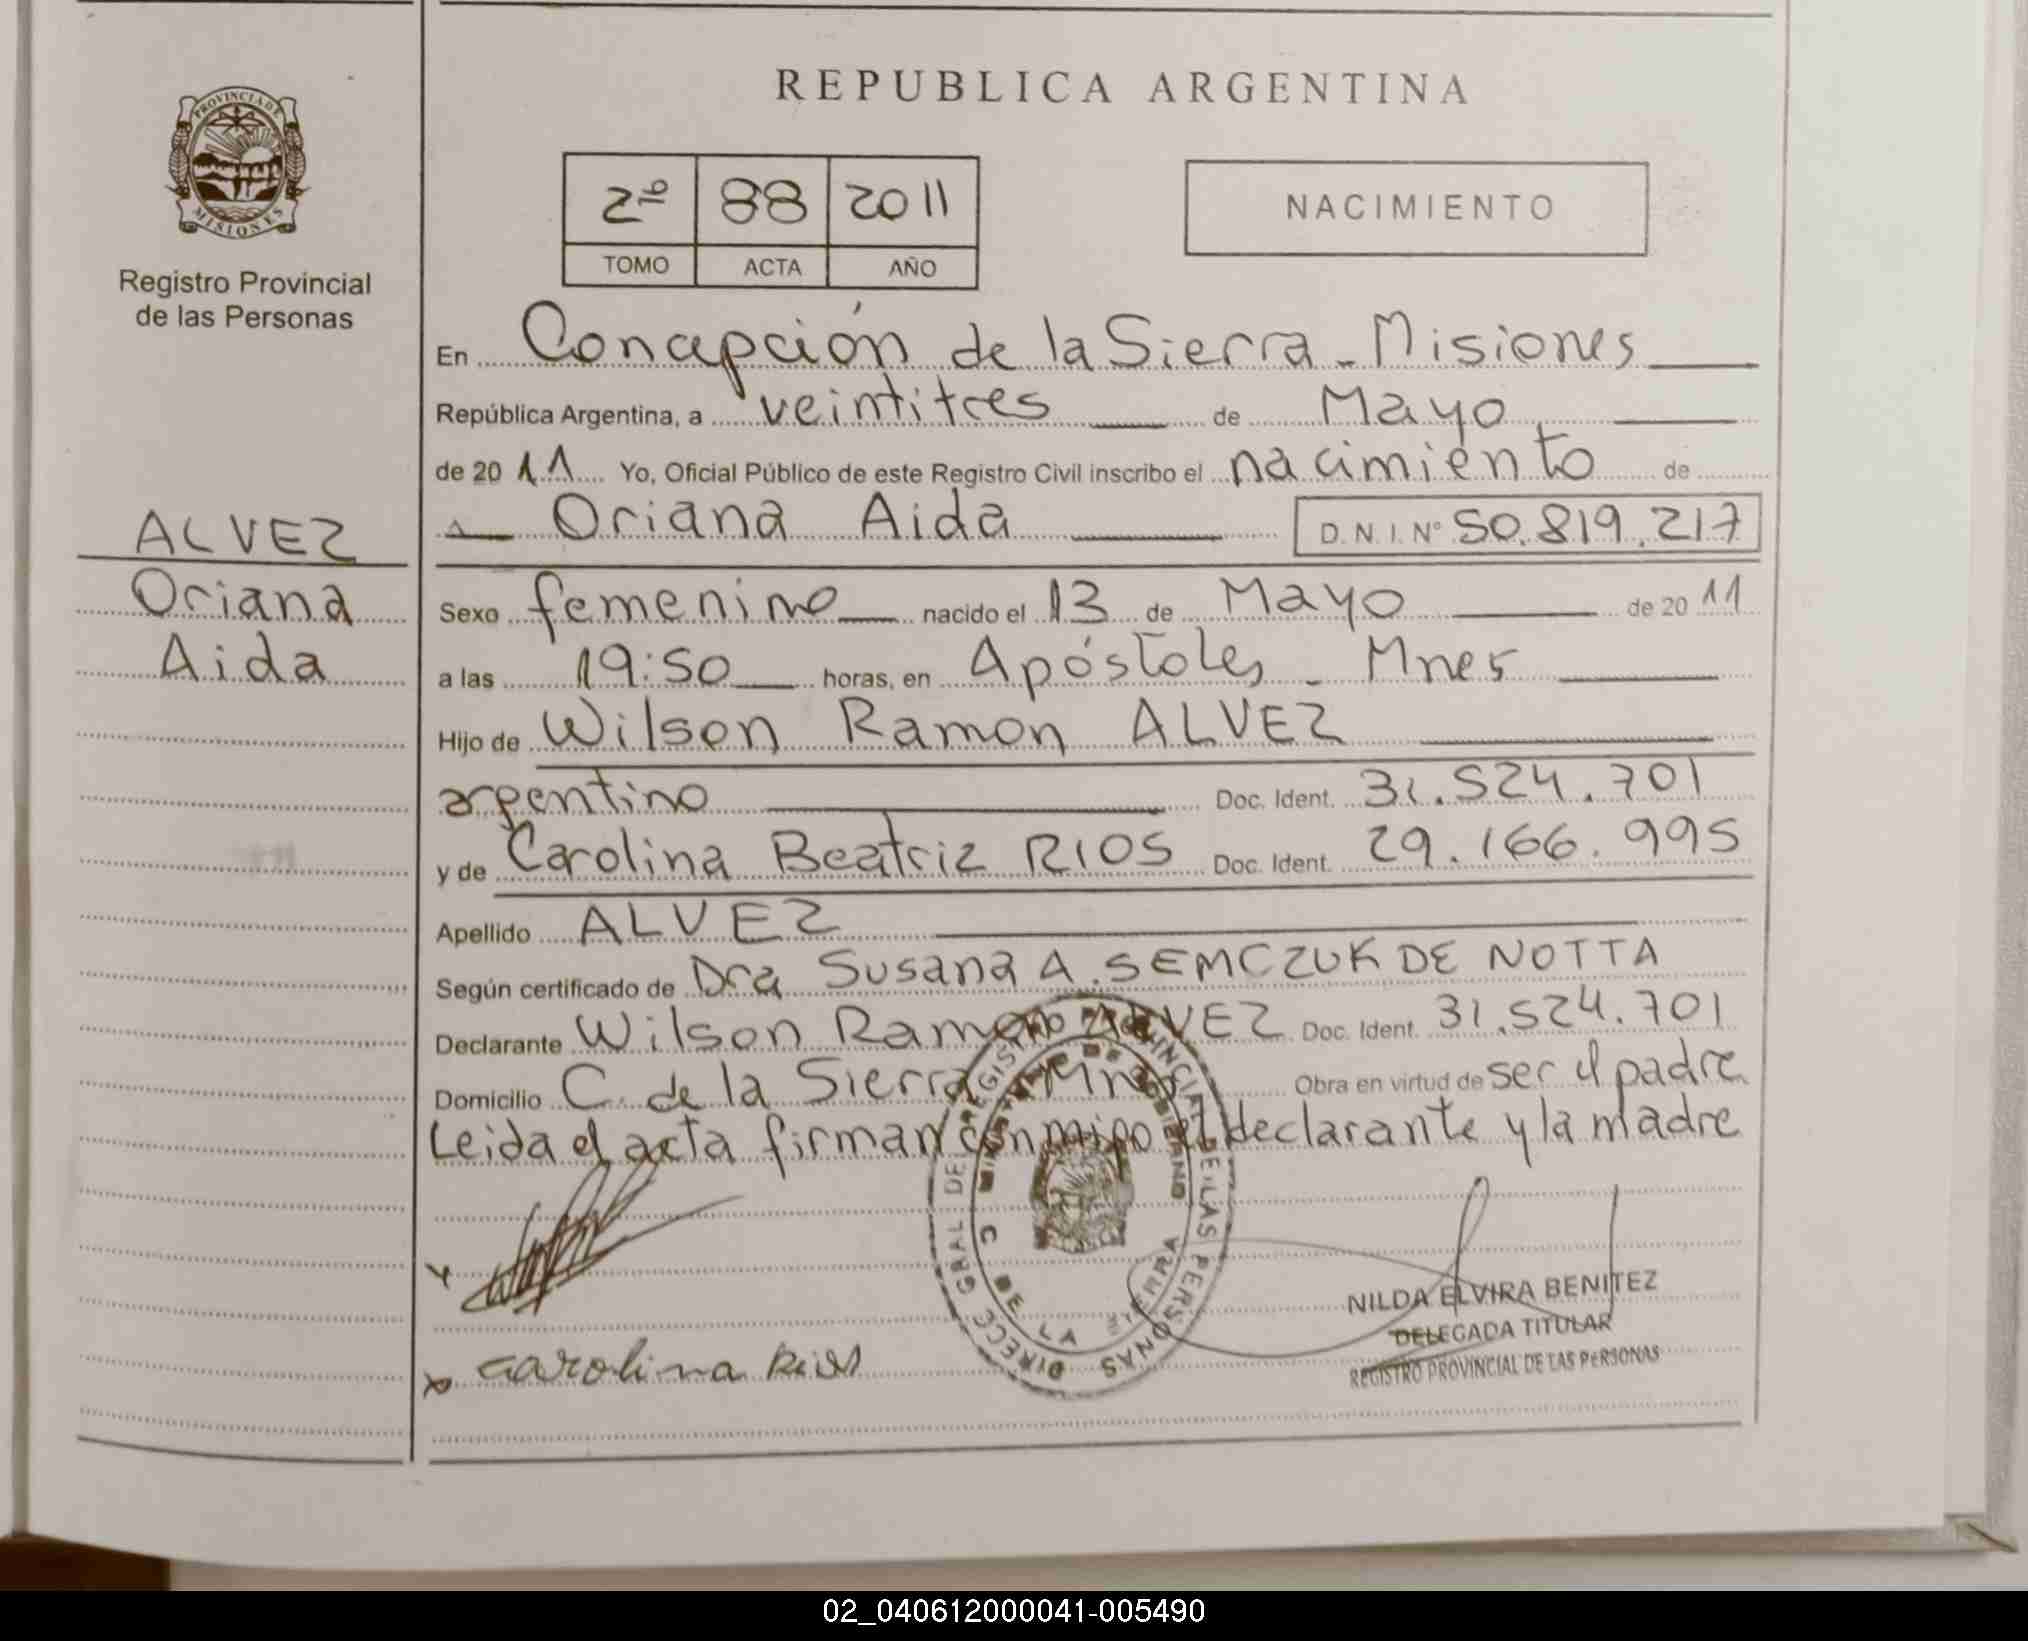 REPUBLICA ARGENTINA
PROVINCIA DE MISIONES
Registro Provincial
de las Personas
2º 88 2011
TOMO ACTA AÑO
NACIMIENTO
En Concepción de la Sierra - Misiones
República Argentina, a veintitres de Mayo
de 2011 Yo, Oficial Público de este Registro Civil inscribo el nacimiento de
Oriana Aida D.N.I. Nº 50.819.217
ALVEZ
Oriana
Aida
Sexo femenino nacido el 13 de Mayo de 2011
a las 19:50 horas, en Apóstoles - Mnes
Hijo de Wilson Ramon ALVEZ
argentino Doc. Ident. 31.524.701
y de Carolina Beatriz RIOS Doc. Ident. 29.166.995
Apellido ALVEZ
Según certificado de Dra Susana A. SEMCZUK DE NOTTA
Declarante Wilson Ramon ALVEZ Doc. Ident. 31.524.701
Domicilio C. de la Sierra Mnes Obra en virtud de ser el padre
Leida el acta firman conmigo el declarante y la madre
DIRECC. GRAL. DE REGISTRO PROVINCIAL DE LAS PERSONAS
MINISTERIO DE GOBIERNO
C. DE LA SIERRA
Carolina Rios
NILDA ELVIRA BENITEZ
DELEGADA TITULAR
REGISTRO PROVINCIAL DE LAS PERSONAS
02_040612000041-005490